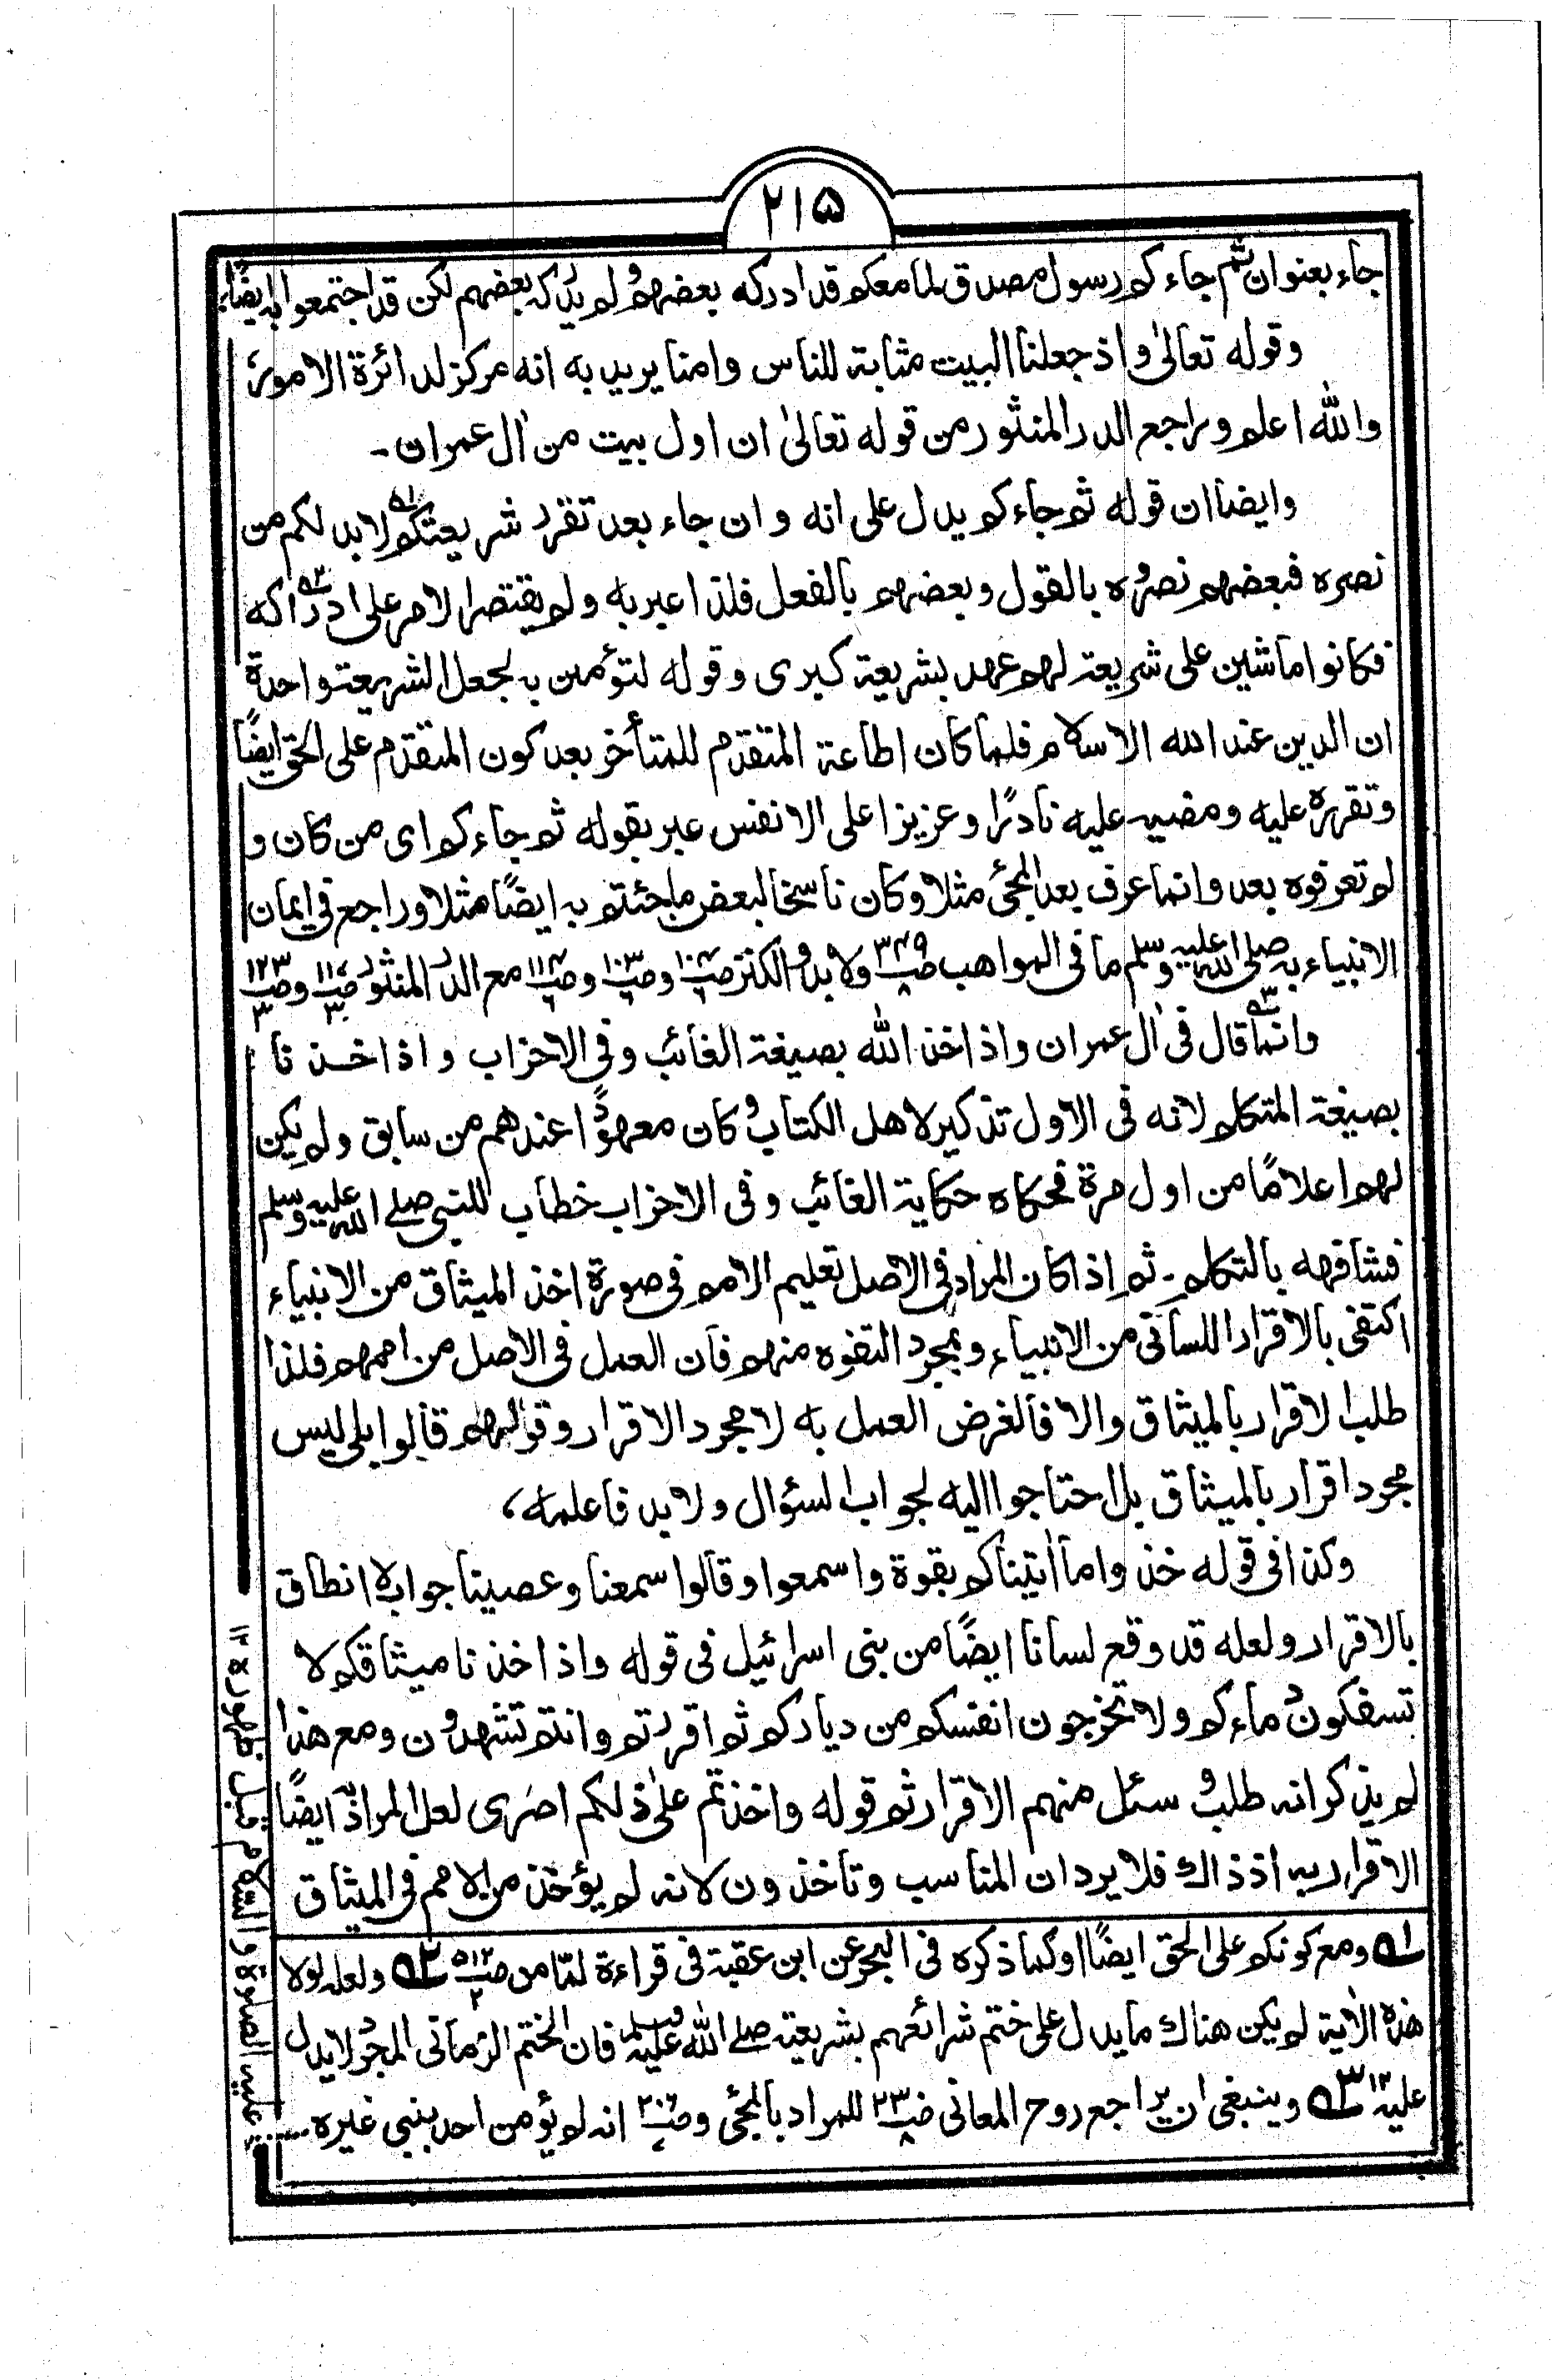 ۲۱۵
جاء بعنوان ثم جاء كم رسول مصدق لما معكم قد ادركه بعضهم ولم يدركه بعضهم لكن قد اجتمعوا به ايضًا
وقوله تعالىٰ واذ جعلنا البيت مثابة للناس وامنا يريد به انه مركز لدائرة الامور
والله اعلم وراجع الدر المنثور من قوله تعالىٰ ان اول بيت من اٰل عمران۔
وايضا ان قوله ثم جاء كم يدل على انه وان جاء بعد تقرر شريعتكم لابد لكم من
نصره فبعضهم نصروه بالقول وبعضهم بالفعل فلذا عبر به ولم يقتصر الامر على ادراكه
فكانوا ماشين على شريعة لهم عهد بشريعة كبرى وقوله لتؤمنن به لجعل الشريعة واحدة
ان الدين عند الله الاسلام فلما كان اطاعة المتقدم للمتأخر بعد كون المتقدم على الحق ايضًا
وتقرره عليه ومضيه عليه نادرًا وعزيزا على الانفس عبر بقوله ثم جاء كم اى من كان و
لم تعرفوه بعد وانما عرف بعد المجئ مثلا وكان ناسخا لبعض ما جئتم به ايضًا مثلا وراجع فى ايمان
الانبياء به صلى الله عليه وسلم ما فى المواهب ص۳۴۹ ولابد والكنز ص و ص۱۰۳ و ص مع الدر المنثور ص و ص۱۲۳
وانما قال فى اٰل عمران واذ اخذ الله بصيغة الغائب وفى الاحزاب واذ اخذ نا
بصيغة المتكلم لانه فى الاول تذكير لاهل الكتاب وكان معهودًا عندهم من سابق ولم يكن
لهم اعلامًا من اول مرة فحكاه حكاية الغائب وفى الاحزاب خطاب للنبى صلے الله عليه وسلم
فشافهه بالتكلم۔ ثم اذا كان المراد فى الاصل تعليم الامم فى صورة اخذ الميثاق من الانبياء
اكتفى بالاقرار اللسانى من الانبياء وبمجرد التفوه منهم فان العمل فى الاصل من اممهم فلذا
طلب الاقرار بالميثاق والا فالغرض العمل به لا مجرد الاقرار وقولهم قالوا بلى ليس
مجرد اقرار بالميثاق بل احتاجوا اليه لجواب السؤال ولابد فاعلمه،
وكذا فى قوله خذوا ما اٰتيناكم بقوة واسمعوا وقالوا سمعنا وعصينا جواب لا انطاق
بالاقرار ولعله قد وقع لسانا ايضًا من بنى اسرائيل فى قوله واذ اخذ نا ميثاقكم لا
تسفكون دماءكم ولا تخرجون انفسكم من دياركم ثم اقررتم وانتم تشهدون ومع هذا
لم يذكر انه طلب وسئل منهم الاقرار ثم قوله واخذتم علىٰ ذلكم اصرى لعل المراد ايضًا
الاقرار به اذ ذاك فلا يرد ان المناسب وتاخذون لانه لم يؤخذ من الامم فى الميثاق
۱ ومع كونكم على الحق ايضًا او كما ذكره فى البحر عن ابن عقبة فى قراءة لمّا من ص۵۱۲ ۲ ولعله لولا
هذه الاٰية لم يكن هناك ما يدل على ختم شرائعهم بشريعته صلے الله عليه وسلم فان الختم الزمانى المجرد لا يدل
عليه ۱۲ ۳ وينبغى ان يراجع روح المعانى ص۲۳ للمراد بالمجئ و ص انه لم يؤمن احد بنبى غيره
عليه الصلوٰة والسلام قبل ظهوره ۱۲